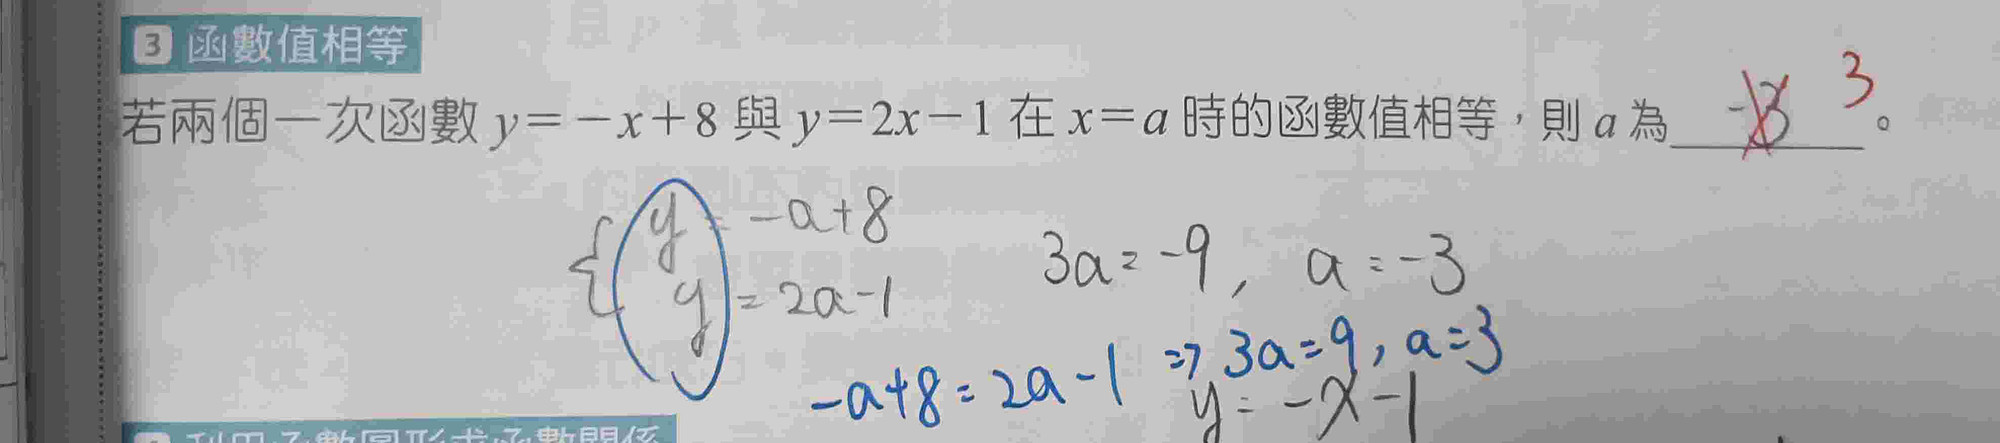 3 函數值相等
若兩個一次函數 y=-x+8 與 y=2x-1 在 x=a 時的函數值相等，則 a 為 -3 3 。
y = -a+8
y = 2a-1
3a=-9, a=-3
-a+8=2a-1 => 3a=9, a=3
y=-x-1
利用函數圖形求函數關係